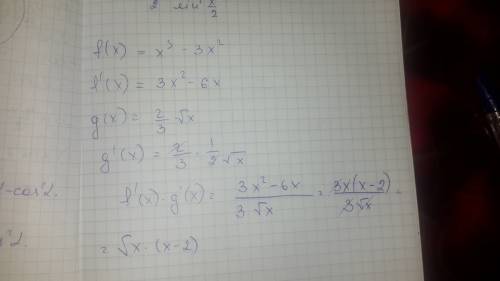 2 sin x/2
f(x) = x³ - 3x²
f'(x) = 3x² - 6x
g(x) = 2/3 · √x
g'(x) = 2/3 · 1/(2√x)
-cos²α. f'(x) · g'(x) = (3x² - 6x)/(3·√x) = (3x(x-2))/(3√x) =
²α. = √x · (x-2)